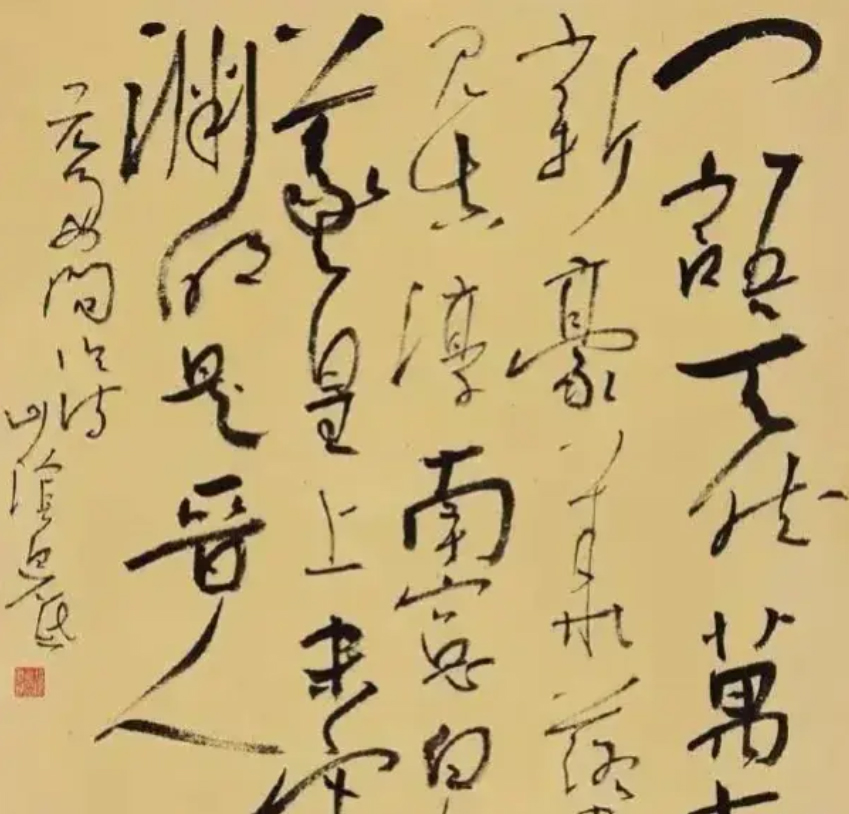 一語天然萬
新豪華落
見真淳南窗白
羲皇上未
淵明是晉人
元好問論詩
山陰